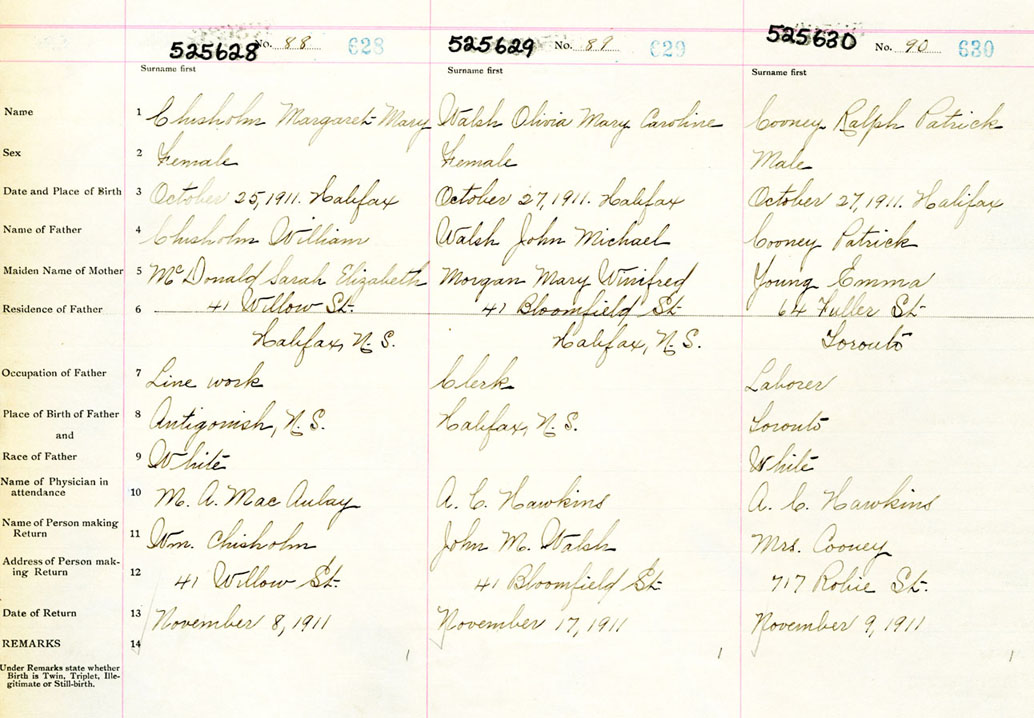 525628 No. 88 628 525629 No. 89 629 525630 No. 90 630
Surname first Surname first Surname first
Name 1 Chisholm Margaret Mary Walsh Olivia Mary Caroline Cooney Ralph Patrick
Sex 2 Female Female Male
Date and Place of Birth 3 October 25, 1911. Halifax October 27, 1911. Halifax October 27, 1911. Halifax
Name of Father 4 Chisholm William Walsh John Michael Cooney Patrick
Maiden Name of Mother 5 McDonald Sarah Elizabeth Morgan Mary Winifred Young Emma
Residence of Father 6 41 Willow St. 41 Bloomfield St 64 Fuller St
Halifax, N.S. Halifax, N.S. Toronto
Occupation of Father 7 Line work Clerk Laborer
Place of Birth of Father 8 Antigonish, N.S. Halifax, N.S. Toronto
and
Race of Father 9 White White
Name of Physician in
attendance 10 M. A. MacAulay A. C. Hawkins A. C. Hawkins
Name of Person making
Return 11 Wm. Chisholm John M. Walsh Mrs. Cooney
Address of Person mak-
ing Return 12 41 Willow St. 41 Bloomfield St 717 Robie St.
Date of Return 13 November 8, 1911 November 17, 1911 November 9, 1911
REMARKS 14
1 1 1
Under Remarks state whether
Birth is Twin, Triplet, Ille-
gitimate or Still-birth.